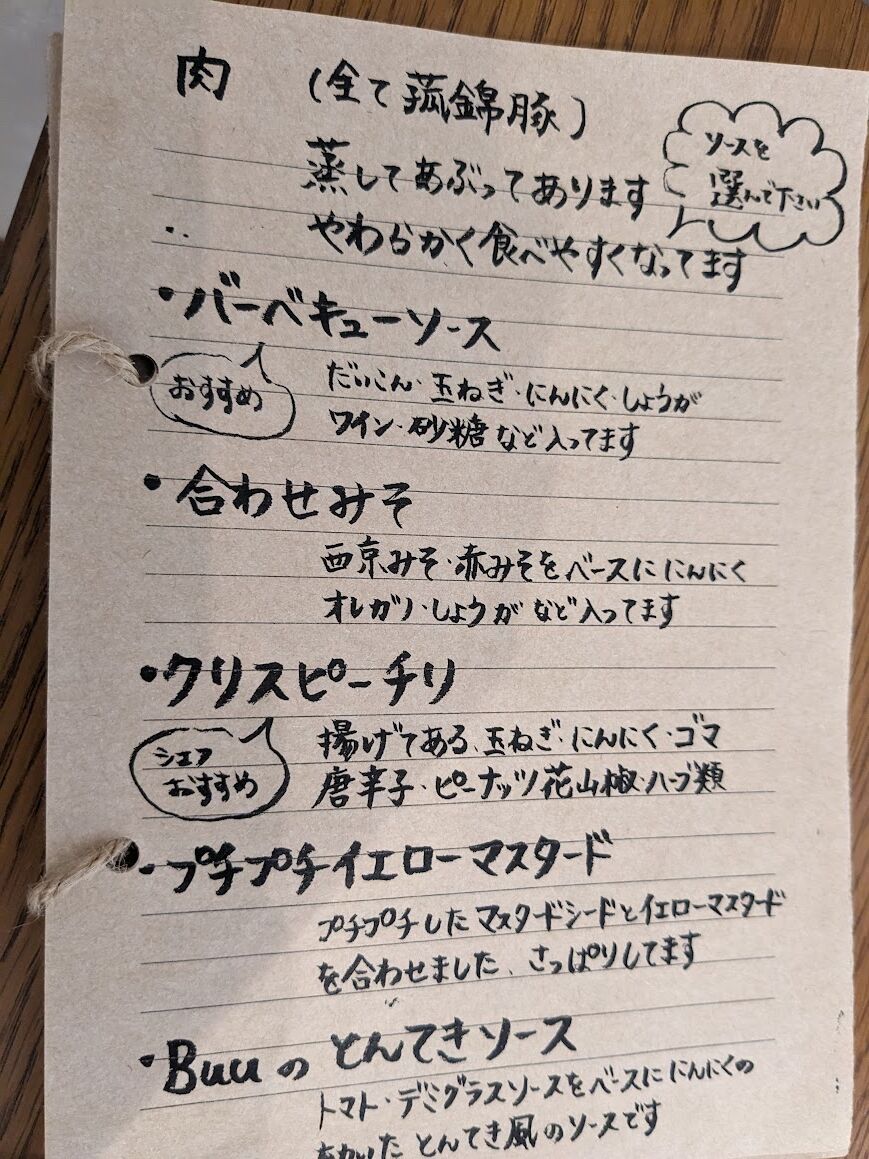 肉 (全て菰錦豚)
ソースを
選んで下さい
蒸してあぶってあります
やわらかく食べやすくなってます
・バーベキューソース
おすすめ
だいこん・玉ねぎ・にんにく・しょうが
ワイン・砂糖など入ってます
・合わせみそ
西京みそ・赤みそをベースににんにく
オレガノ・しょうがなど入ってます
・クリスピーチリ
シェフ
おすすめ
揚げてある、玉ねぎ・にんにく・ゴマ
唐辛子・ピーナッツ花山椒・ハーブ類
・プチプチイエローマスタード
プチプチしたマスタードシードとイエローマスタード
を合わせました、さっぱりしてます
・Buuのとんてきソース
トマト・デミグラスソースをベースににんにくの
いたとんてき風のソースです